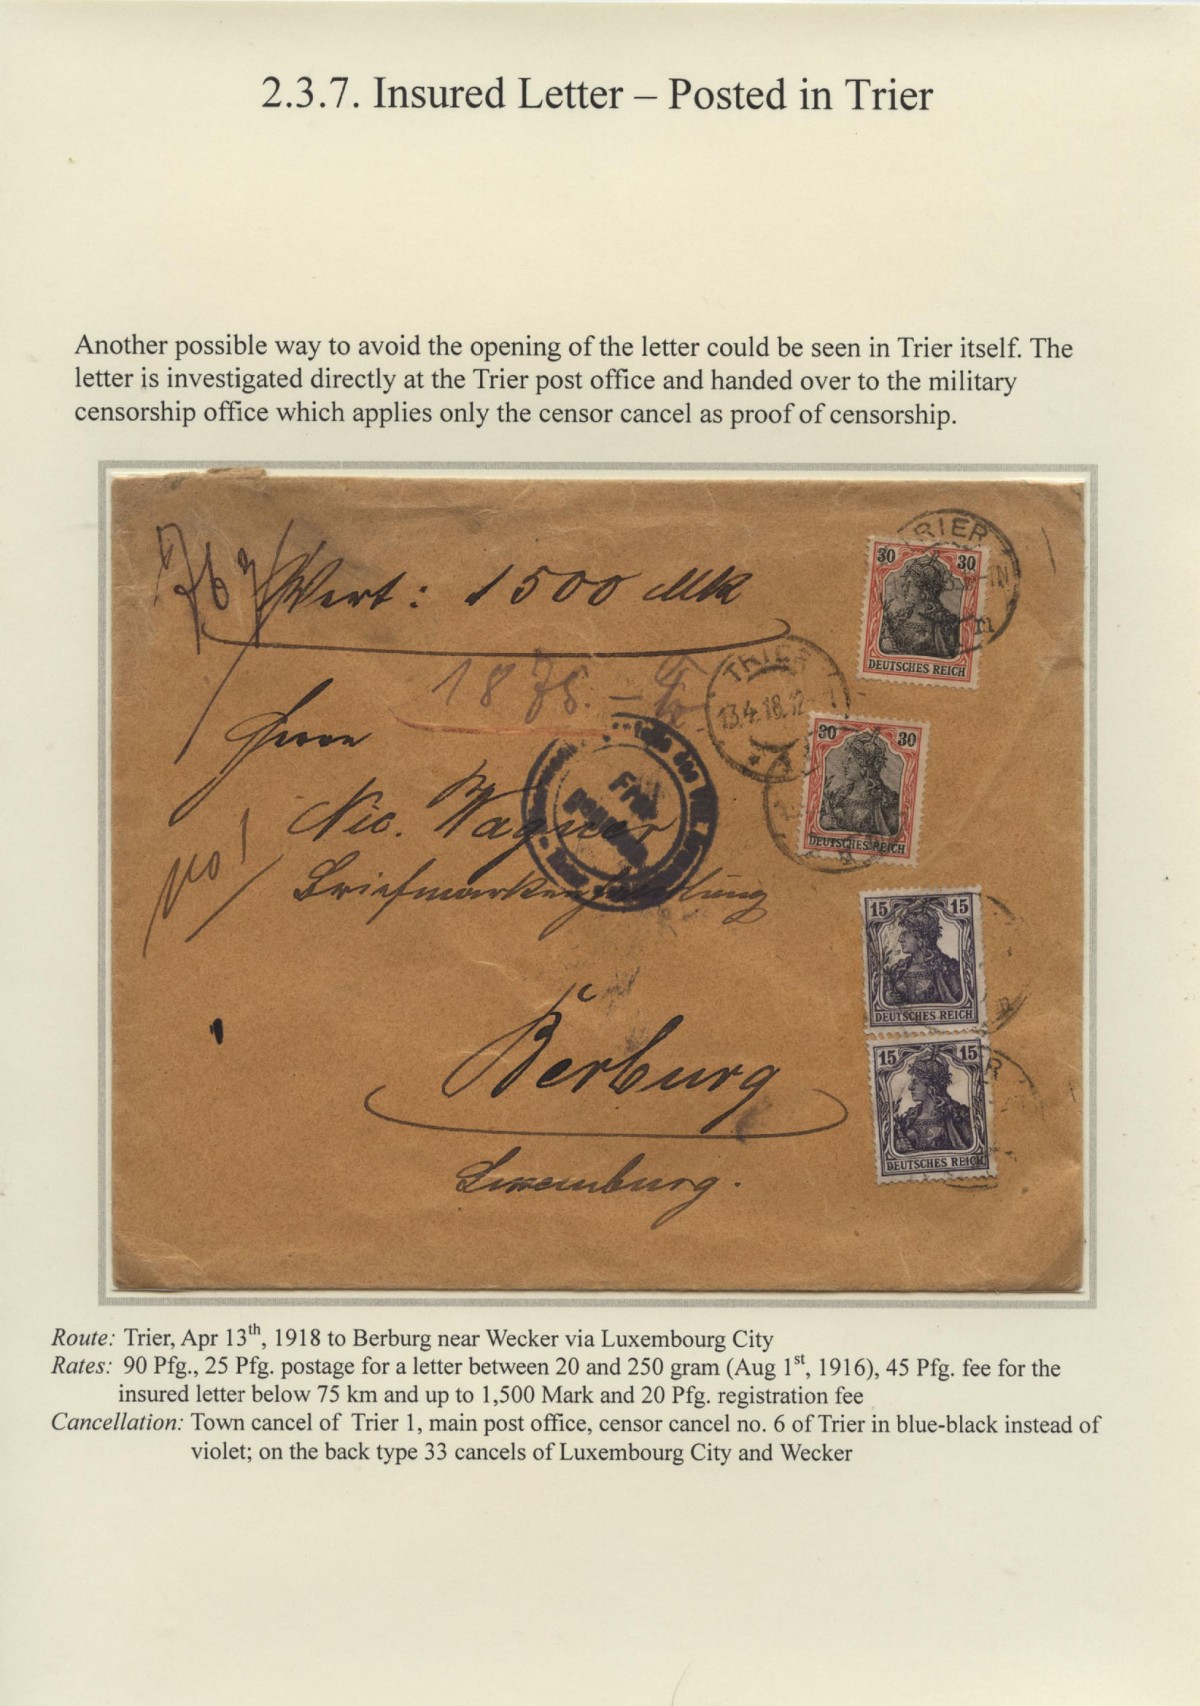 2.3.7. Insured Letter – Posted in Trier
Another possible way to avoid the opening of the letter could be seen in Trier itself. The
letter is investigated directly at the Trier post office and handed over to the military
censorship office which applies only the censor cancel as proof of censorship.
TRIER
30 30
DEUTSCHES REICH
767
Wert: 1500 Mk
1875.-
TRIER
13.4.18.12-
30 30
DEUTSCHES REICH
Herrn
Nic. Wagner
Briefmarkenhandlung
Frei
gegeben
15 15
DEUTSCHES REICH
15 15
DEUTSCHES REICH
Berburg
Luxemburg.
Route: Trier, Apr 13th, 1918 to Berburg near Wecker via Luxembourg City
Rates: 90 Pfg., 25 Pfg. postage for a letter between 20 and 250 gram (Aug 1st, 1916), 45 Pfg. fee for the
insured letter below 75 km and up to 1,500 Mark and 20 Pfg. registration fee
Cancellation: Town cancel of Trier 1, main post office, censor cancel no. 6 of Trier in blue-black instead of
violet; on the back type 33 cancels of Luxembourg City and Wecker